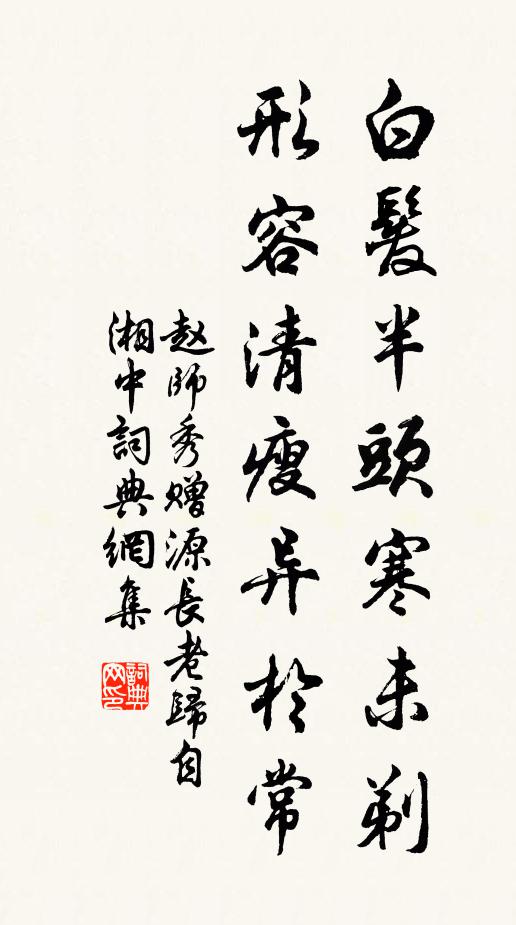 白髮半頭寒未剃
形容清瘦异於常
赵師秀赠源長老歸自
湘中詞典網集
詞典
网印